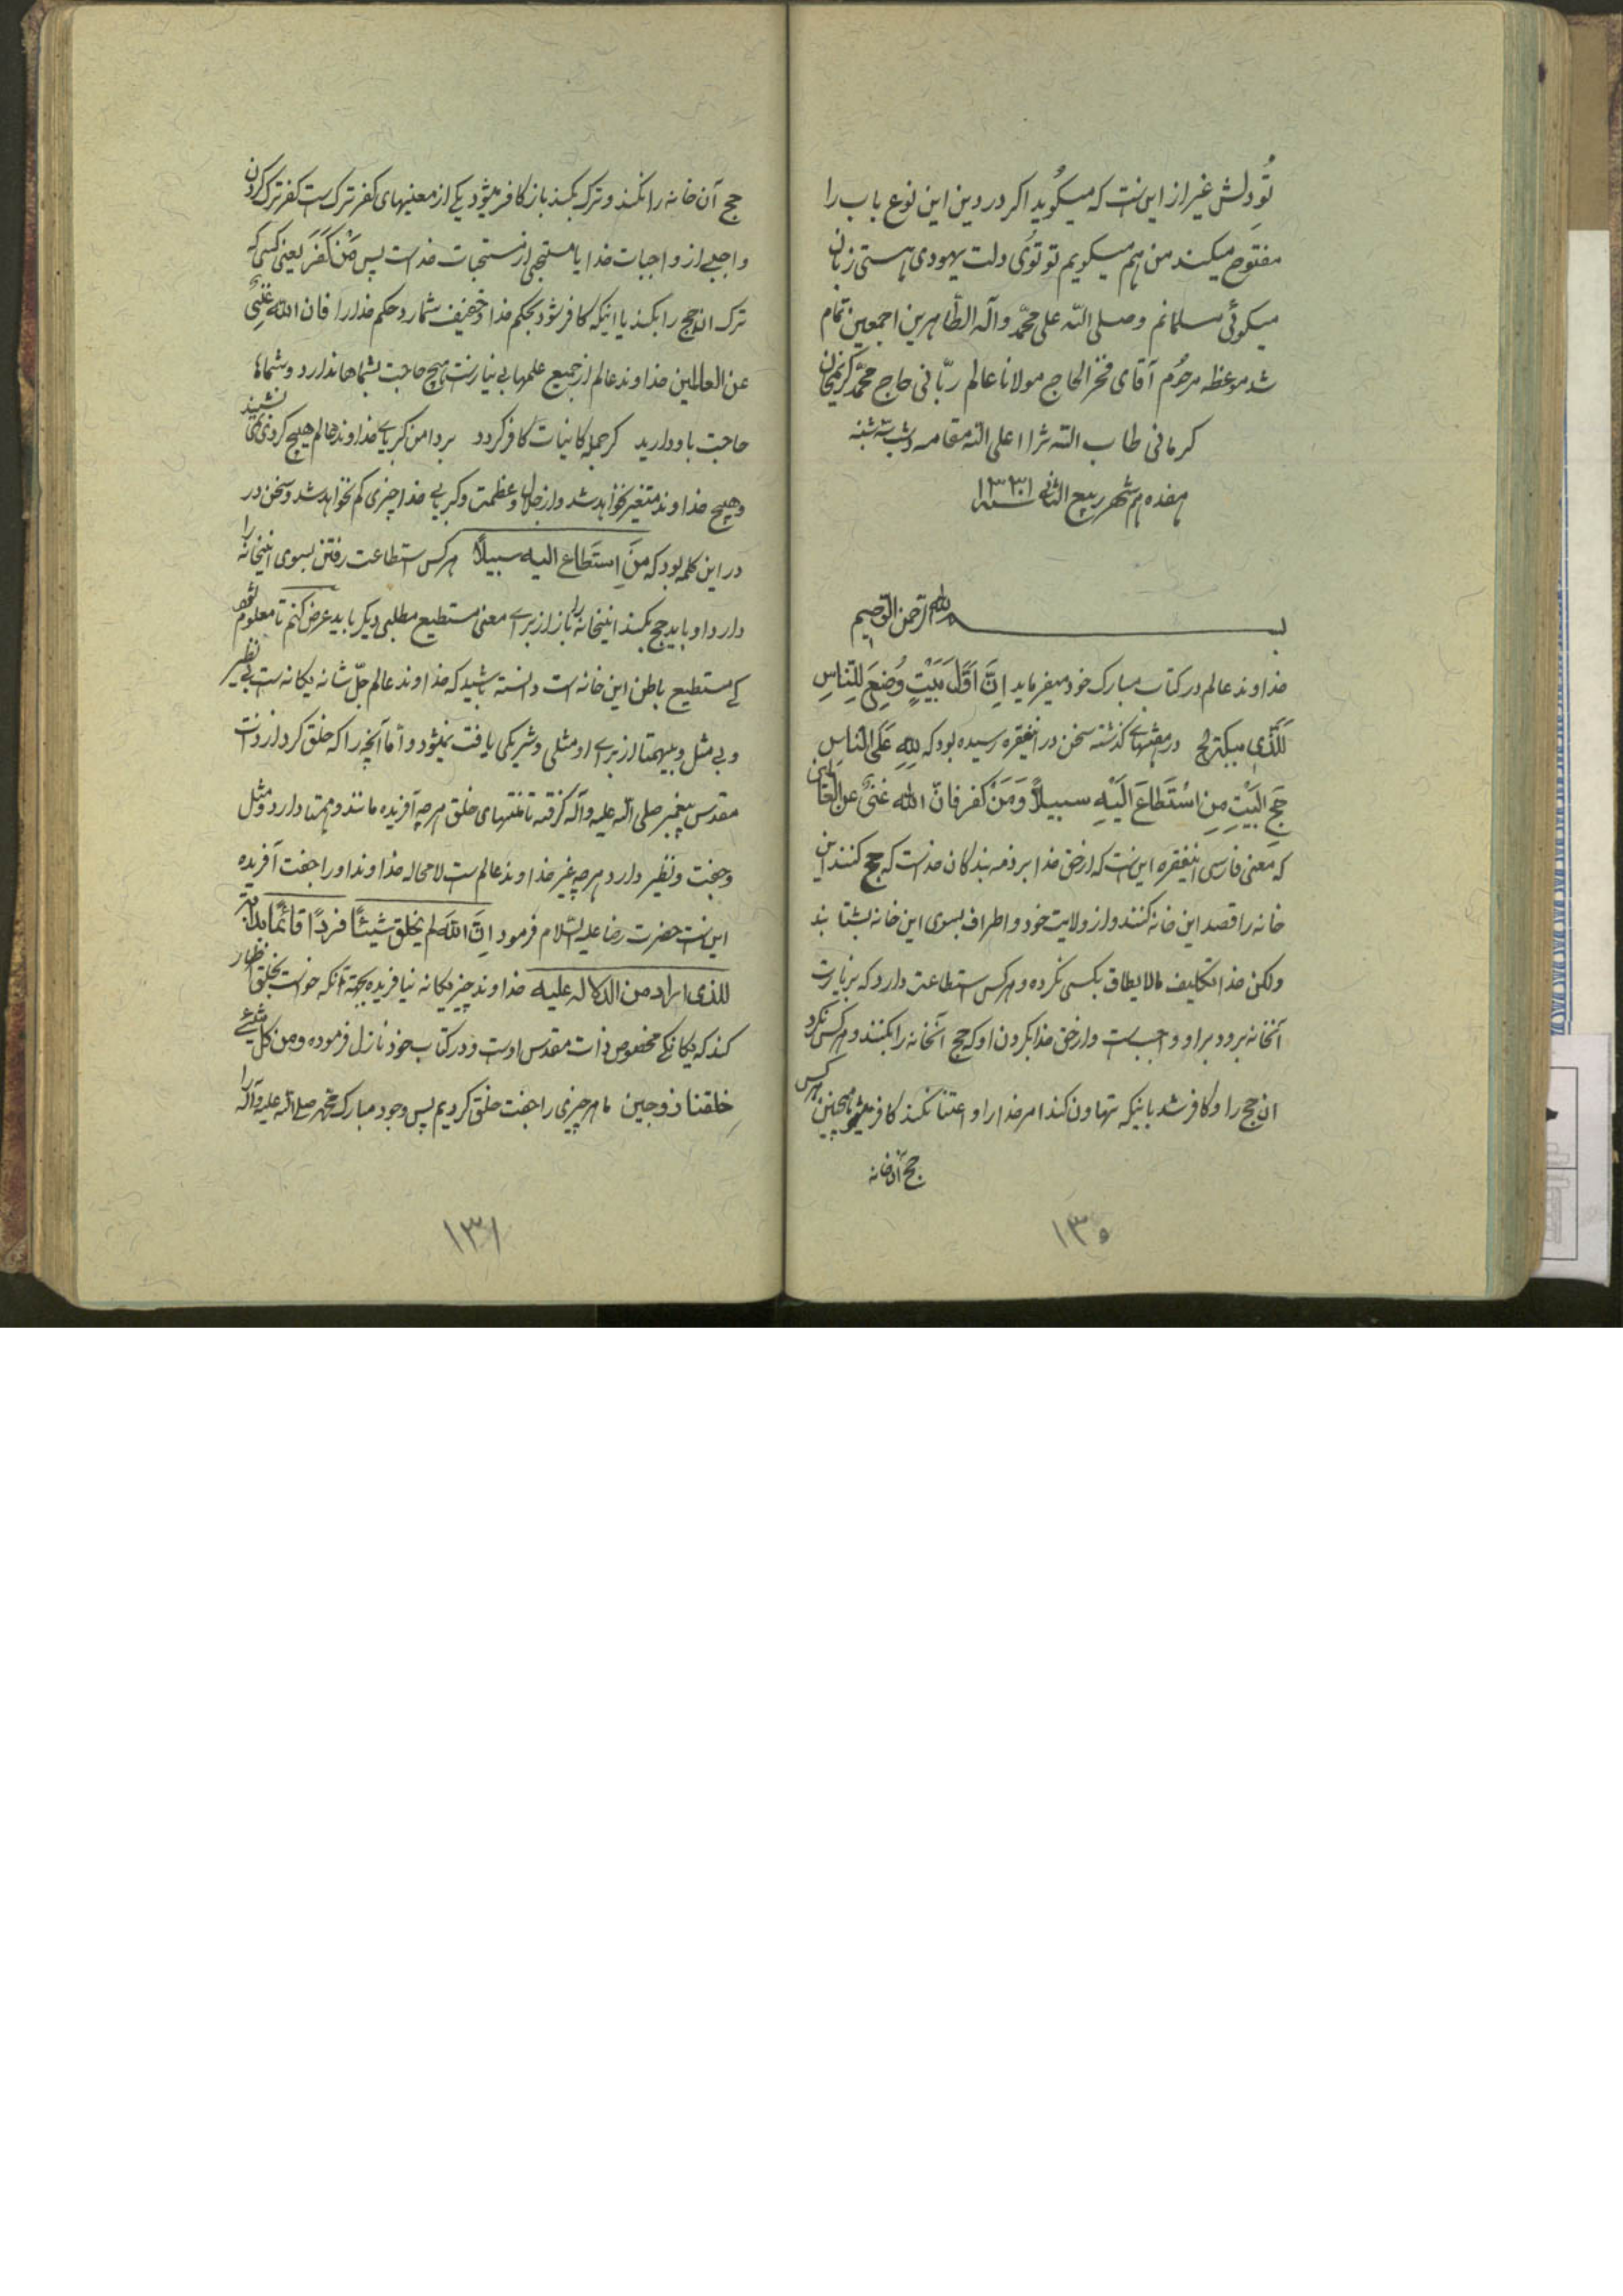 تو دلش غیر از این نیست که میگوید اکر در دین این نوع باب را
مفتوح میکیند من هم میکویم تو توی دلت یهودی هستی زبان
میکوئی مسلمانم و صلی الله علی محمّد و آله الطّاهرین اجمعین تمام
شد موعظه مرحوم آقای فخر الحاج مولانا عالم ربّانی حاج محمّد کریمخان
کرمانی طاب الله ثراا علی الله مقامه شب شنبه
هفدهم شهر ربیع الثانی سنه ۱۳۳۰
بسم الله الرحمن الرحیم
خداوند عالم در کتاب مبارک خود میفرماید اِنَّ اَوَّلَ بَیْتٍ وُضِعَ لِلنّاسِ
لَلَّذی ببکة الخ در مقشهای کذشته سخن در اینفقره رسیده بود که لِلّهِ عَلَی النّاسِ
حَجُّ البَیْتِ مِنِ اسْتَطاعَ اِلَیْهِ سبیلاً وَمَنْ کَفَر فانّ الله غنیٌ عن العالمین
که معنی فارسی اینفقره این است که از حق خدا بر ذمه بندکان خداست که حج کنند این
خانه را قصد این خانه کنند و از ولایت خود و اطراف بسوی این خانه بشتابند
ولکن خدا تکلیف مالایطاق بکسی نکرده و هر کس استطاعت دارد که بزیارت
آنخانه برود بر او واجب است و از حق خدا بکردن او که حج آنخانه را بکنند و هر کس نکرد
ان حج را و کافر شد باینکه تهاون کند امر خدا را و اعتنا نکند کافر میشود همچنین هر کس
حج آن خانه
۱۳۰
حج آن خانه را نکند و ترک بکند باز کافر میشود یکی از معنیهای کفر ترک است کفر ترک کردن
واجبی از واجبات خدا یا مستحبی از مستحبات خداست پس مَنْ کَفَرَ یعنی کسی که
ترک ان حج را بکند یا اینکه کافر شود بحکم خدا و خفیف شمارد حکم خدا را فان الله غنیٌ
عن العالمین خداوند عالم از جمیع علمها بی نیاز است هیچ حاجت بشماها ندارد و شماها
حاجت باو دارید کر جمله کاینات کافر کردد بر دامن کبریای خداوند عالم هیچ کردی نمی نشیند
و هیچ خداوند متغیر نخواهد شد و از جلال و عظمت و کبریایی خدا چیزی کم نخواهد شد و سخن در
در این کلمه بود که مَنِ اِستَطاع الیه سبیلاً هر کس استطاعت رفتن بسوی اینخانه را
دارد او باید حج بکند اینخانه را باز از برای معنی مستطیع مطلبی دیکر باید عرض کنم تا معلوم شود
کی مستطیع باطن این خانه است دانسته باشید که خداوند عالم جلّ شانه یکانه است بی نظیر
و بی مثل و بیهمتا از برای او مثلی و شریکی یافت نمیشود و امّا آنچه را که خلق کرد از ذات
مقدس پیغمبر صلی الله علیه و آله کرفته تا منتهای خلق هر چه آفریده مانند و همتا دارد و مثل
و جفت و نظیر دارد هر چه غیر خداوند عالم است لامحاله خداوند او را جفت آفریده
این است حضرت رضا علیه السّلام فرمود اِنَّ الله لم یخلق شیئاً فرداً قائماً بذاته
للذی اراد من الدلاله علیه خداوند چیز یکانه نیافریده بجهة آنکه خواست بخلق اظهار
کند که یکانکی مخصوص ذات مقدس اوست و در کتاب خود نازل فرموده و من کل شیئی
خلقنا زوجین ما هر چیزی را جفت خلق کردیم پس وجود مبارک محمد صلی الله علیه و آله را
۱۳۱